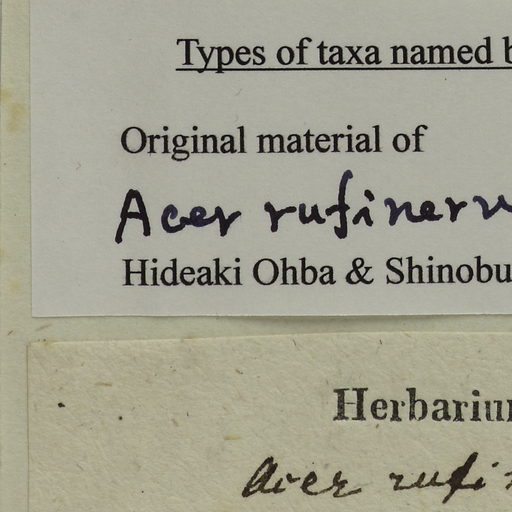 Types of taxa named b
Original material of
Acer rufinerv
Hideaki Ohba & Shinobu
Herbariu
Acer rufin